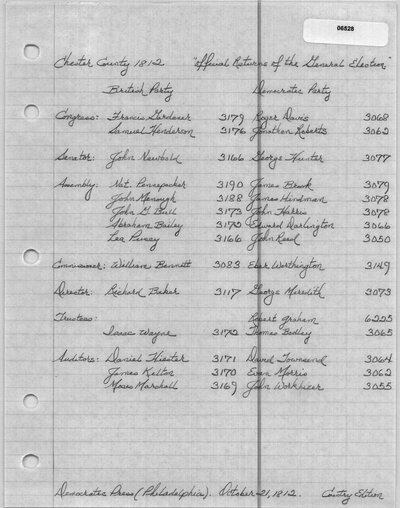 06528
Chester County 1812 "Official Returns of the General Election"
British Party Democratic Party
Congress: Francis Gardner 3179 Roger Davis 3068
Samuel Henderson 3176 Jonathan Roberts 3062
Senator: John Newbold 3166 George Hunter 3077
Assembly: Nat. Pennepacker 3190 James Brook 3079
John 3188 James Hindman 3078
John G. Bull 3173 John Harris 3078
Abraham Bailey 3172 Edward Darlington 3066
Lea Pusey 3166 John Reed 3050
Commissioner: William Bennett 3083 Eber Worthington 3149
Director: Richard Baker 3117 George Meredith 3073
Trustees: Robert Graham 6225
Isaac Wayne 3172 Thomas 3065
Auditors: Daniel Hiester 3171 David Townsend 3064
James Kelton 3170 Evan Morris 3062
Moses Marshall 3169 John Workhizer 3055
Democratic Press (Philadelphia). October 21, 1812. Country Edition